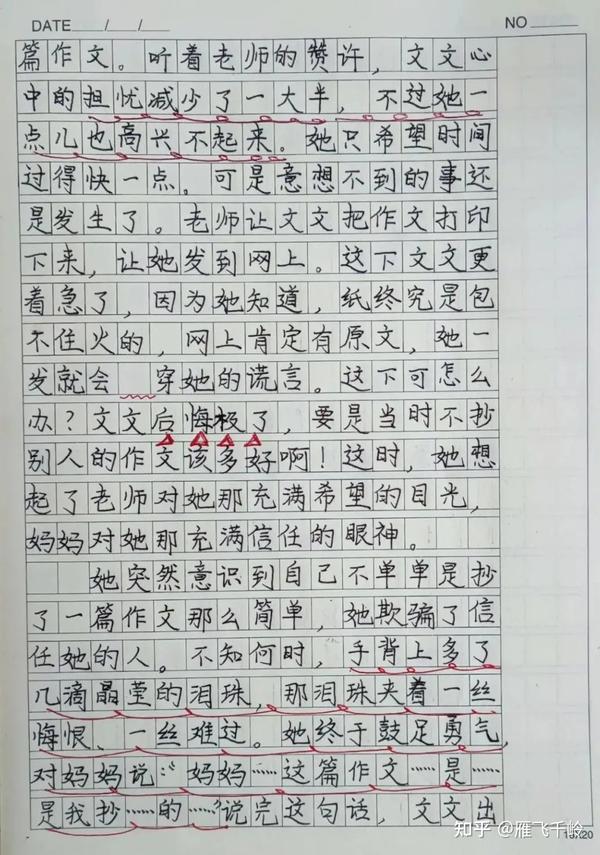 DATE / / NO
篇作文。听着老师的赞许，文文心
中的担忧减少了一大半，不过她一
点儿也高兴不起来。她只希望时间
过得快一点。可是意想不到的事还
是发生了。老师让文文把作文打印
下来，让她发到网上。这下文文更
着急了，因为她知道，纸终究是包
不住火的，网上肯定有原文，她一
发就会 穿她的谎言。这下可怎么
办？文文后悔极了，要是当时不抄
别人的作文该多好啊！这时，她想
起了老师对她那充满希望的目光，
妈妈对她那充满信任的眼神。
她突然意识到自己不单单是抄
了一篇作文那么简单，她欺骗了信
任她的人。不知何时，手背上多了
几滴晶莹的泪珠，那泪珠夹着一丝
悔恨、一丝难过。她终于鼓足勇气，
对妈妈说：“妈妈……这篇作文……是……
是我抄……的……”说完这句话，文文出
知乎 @雁飞千岭